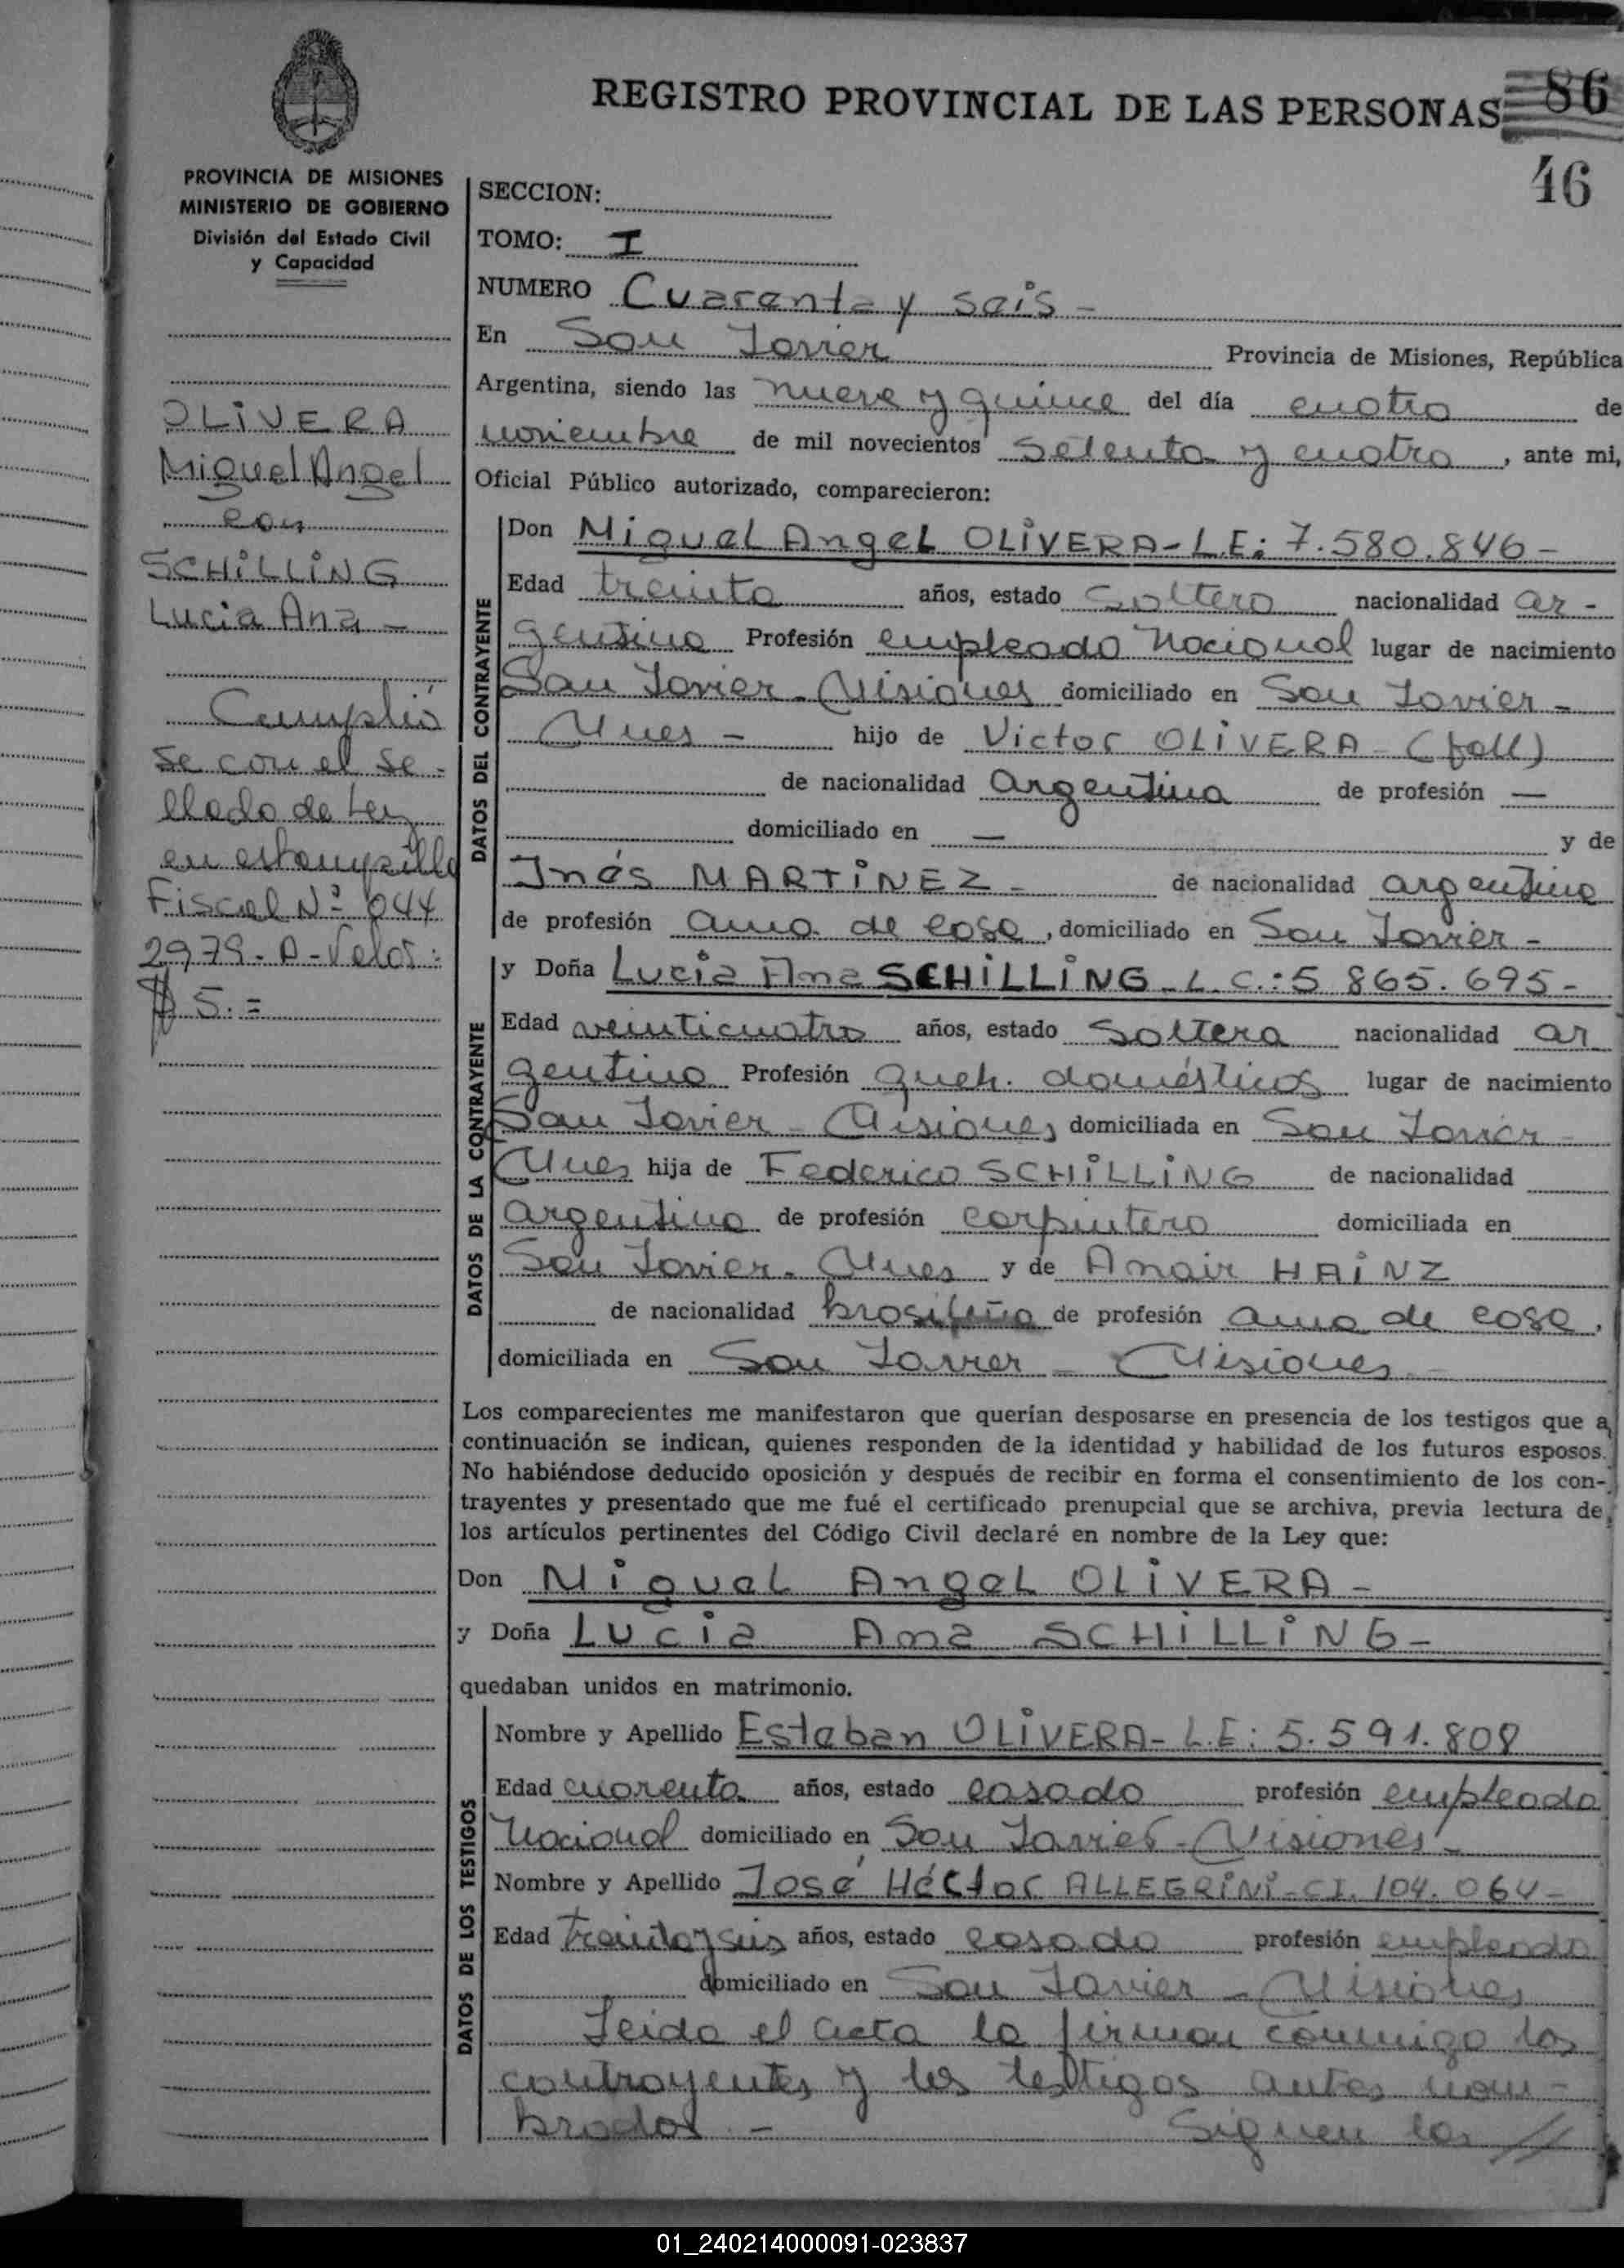 REGISTRO PROVINCIAL DE LAS PERSONAS 86
46
PROVINCIA DE MISIONES
MINISTERIO DE GOBIERNO
División del Estado Civil
y Capacidad
OLIVERA
Miguel Angel
con
SCHILLING
Lucia Ana -
Cumplió
se con el se-
llado de Ley
en estampilla
Fiscal Nº 044
2979-A-Valor:
$ 5.=
SECCION:
TOMO: I
NUMERO Cuarenta y seis -
En San Javier Provincia de Misiones, República
Argentina, siendo las nueve y quince del día cuatro de
noviembre de mil novecientos setenta y cuatro, ante mi,
Oficial Público autorizado, comparecieron:
DATOS DEL CONTRAYENTE
Don Miguel Angel OLIVERA - L.E: 7.580.846 -
Edad treinta años, estado soltero nacionalidad ar-
gentina Profesión empleado Nacional lugar de nacimiento
San Javier - Misiones domiciliado en San Javier -
Mnes - hijo de Victor OLIVERA - (fall)
de nacionalidad argentina de profesión —
domiciliado en — y de
Inés MARTINEZ - de nacionalidad argentina
de profesión ama de casa, domiciliado en San Javier -
DATOS DE LA CONTRAYENTE
y Doña Lucia Ana SCHILLING - L.C.: 5 865.695 -
Edad veinticuatro años, estado soltera nacionalidad ar
gentina Profesión queh. domésticos lugar de nacimiento
San Javier - Misiones domiciliada en San Javier -
Mnes hija de Federico SCHILLING de nacionalidad
argentina de profesión carpintero domiciliada en
San Javier - Mnes y de Anair HAINZ
de nacionalidad brasileña de profesión ama de casa,
domiciliada en San Javier - Misiones -
Los comparecientes me manifestaron que querían desposarse en presencia de los testigos que a
continuación se indican, quienes responden de la identidad y habilidad de los futuros esposos.
No habiéndose deducido oposición y después de recibir en forma el consentimiento de los con-
trayentes y presentado que me fué el certificado prenupcial que se archiva, previa lectura de
los artículos pertinentes del Código Civil declaré en nombre de la Ley que:
Don Miguel Angel OLIVERA -
y Doña Lucia Ana SCHILLING -
quedaban unidos en matrimonio.
DATOS DE LOS TESTIGOS
Nombre y Apellido Esteban OLIVERA - L.E: 5.591.808
Edad cuarenta años, estado casado profesión empleado
Nacional domiciliado en San Javier - Misiones -
Nombre y Apellido José Héctor ALLEGRINI - C.I. 104.064 -
Edad treinta y seis años, estado casado profesión empleado
domiciliado en San Javier - Misiones
Leida el acta la firman conmigo los
contrayentes y los testigos antes nom-
brados - Siguen las //
01_240214000091-023837